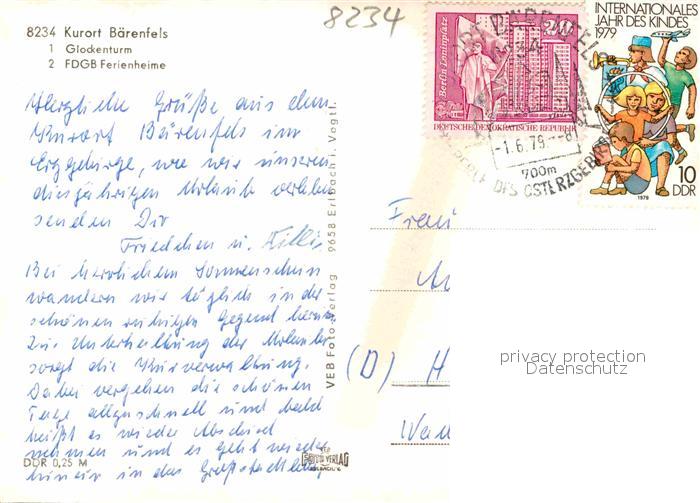 8234 Kurort Bärenfels
1 Glockenturm
2 FDGB Ferienheime
8234
Herzliche Grüße aus dem
Kurort Bärenfels im
Erzgebirge, wo wir unseren
diesjährigen Urlaub verleben
senden Dir
Friedchen u.
Bei herrlichem Sonnenschein
wandern wir täglich in der
schönen ruhigen Gegend herum
Zur Unterhaltung der Urlauber
sorgt die Kurverwaltung.
Dabei vergehen die schönen
Tage allzuschnell und bald
heißt es wieder Abschied
nehmen und es geht wieder
hinein in das
DDR 0,25 M
VEB Foto-Verlag 9658 Erlbach i. Vogtl.
FOTO VERLAG
ERLBACH
Berlin, Leninplatz
20
DEUTSCHE DEMOKRATISCHE REPUBLIK
INTERNATIONALES
JAHR DES KINDES
1979
10
DDR
1979
KURORT BÄRENFELS
-1.6.79
700m
PERLE DES OSTERZGEBIRGES
Frau
(D) H
privacy protection
Datenschutz